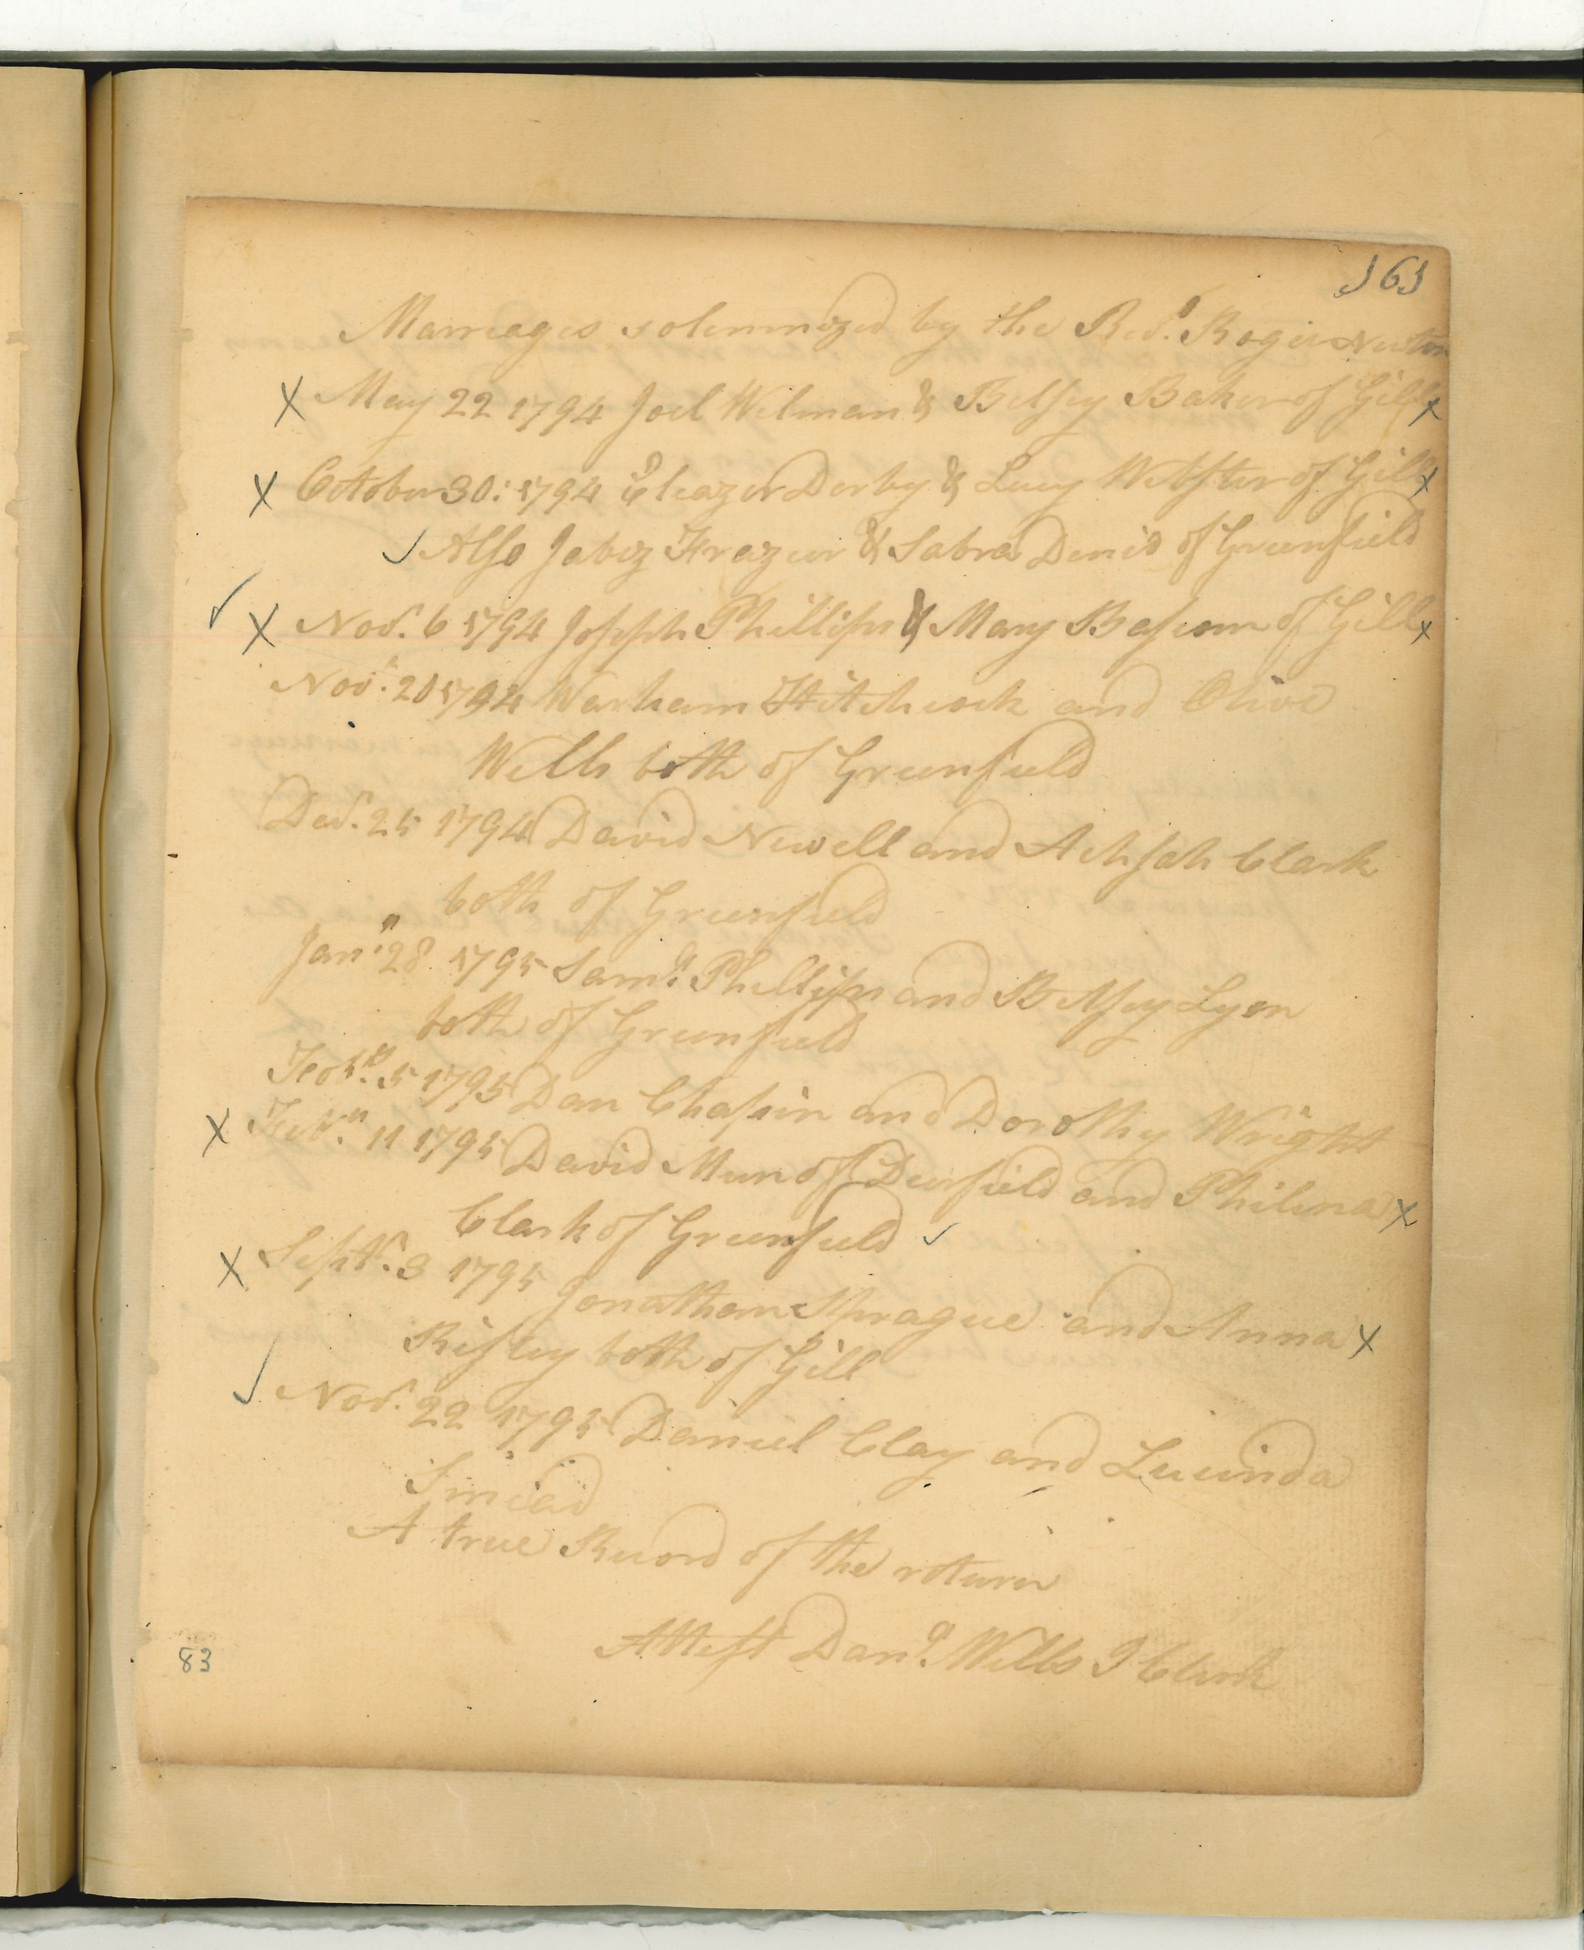 161
Marriages solemnized by the Revd. Roger Newton
X May 22 1794 Joel Wilman & Betsey Baker of Gill X
X October 30: 1794 Eleazer Derby & Lucy Webster of Gill X
✓ Also Jabez Frazier & Sabra Denio of Greenfield
✓ X Novr. 6 1794 Joseph Phillips & Mary Bascom of Gill X
Novr. 20 1794 Warham Hitchcock and Olive
Wells both of Greenfield
Decr. 25 1794 David Newell and Achsah Clark
both of Greenfield
Jany. 28 1795 Saml. Phillips and Betsey Lyon
both of Greenfield
Feby. 5 1795 Dan Chapin and Dorothy Wright
X Feby. 11 1795 David Mun of Deerfield and Philena X
Clark of Greenfield ✓
X Septr. 3 1795 Jonathan Sprague and Anna X
Risley both of Gill
✓ Novr. 22 1795 Daniel Clay and Lucinda
Sincad
A true Record of the return
Attest Danl. Wells T Clerk
83